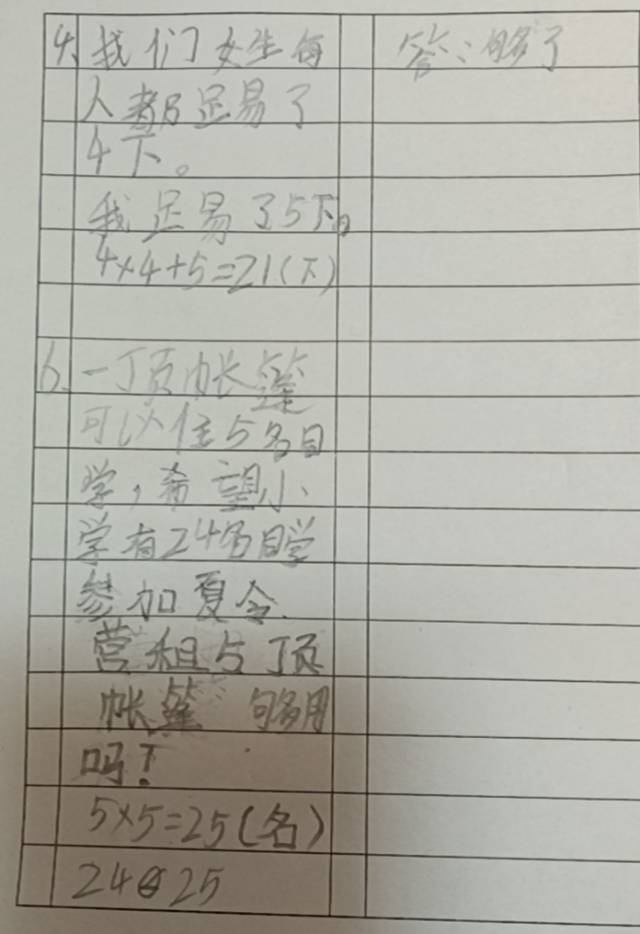 4.我们女生每
人都足易了
4下。
我足易了5下。
4×4+5=21(下)
6.一顶帐篷
可以住5名同
学,希望小
学有24名同学
参加夏令
营租5顶
帐篷 够用
吗?
5×5=25(名)
24 25
答:够了